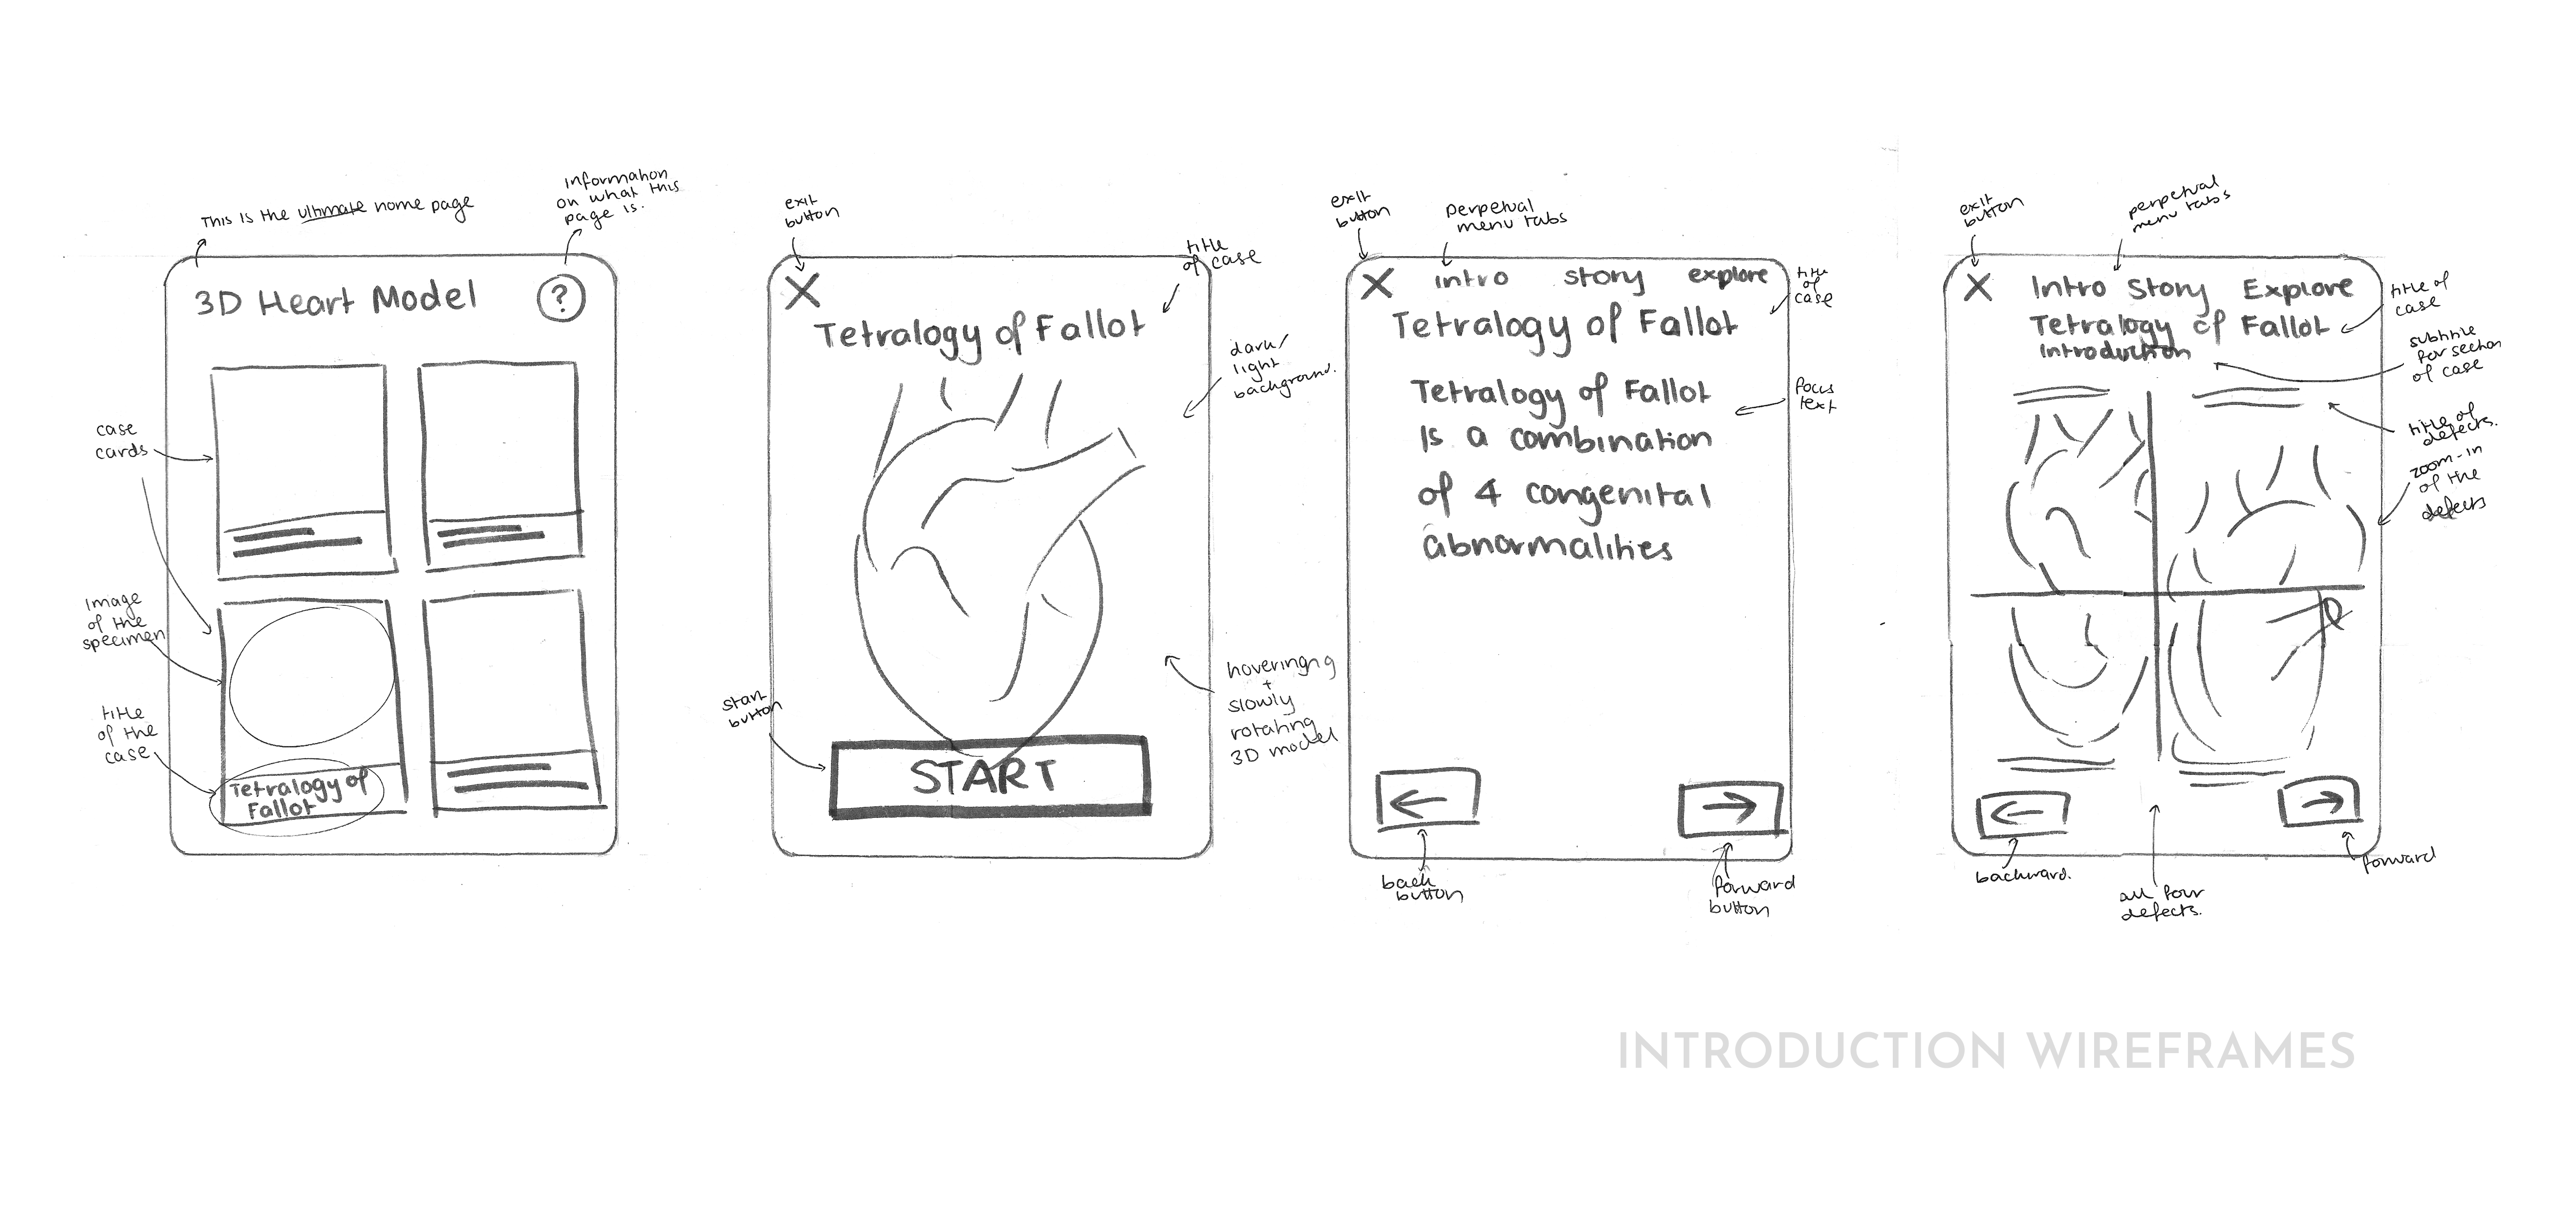 This is the ultimate home page
information
on what this
page is.
3D Heart Model
?
case
cards
image
of the
specimen
title
of the
case
Tetralogy of
Fallot
exit
button
title
of case
X
Tetralogy of Fallot
dark/
light
background.
hovering
+
slowly
rotating
3D model
start
button
START
exit
button
perpetual
menu tabs
X intro story explore
title
of
case
Tetralogy of Fallot
Tetralogy of Fallot
Is a combination
of 4 congenital
abnormalities
focus
text
back
button
forward
button
exit
button
perpetual
menu tabs
X Intro Story Explore
Tetralogy of Fallot
Introduction
title of
case
subtitle
for section
of case
title of
defects.
zoom-in
of the
defects
backward.
all four
defects.
forward
INTRODUCTION WIREFRAMES